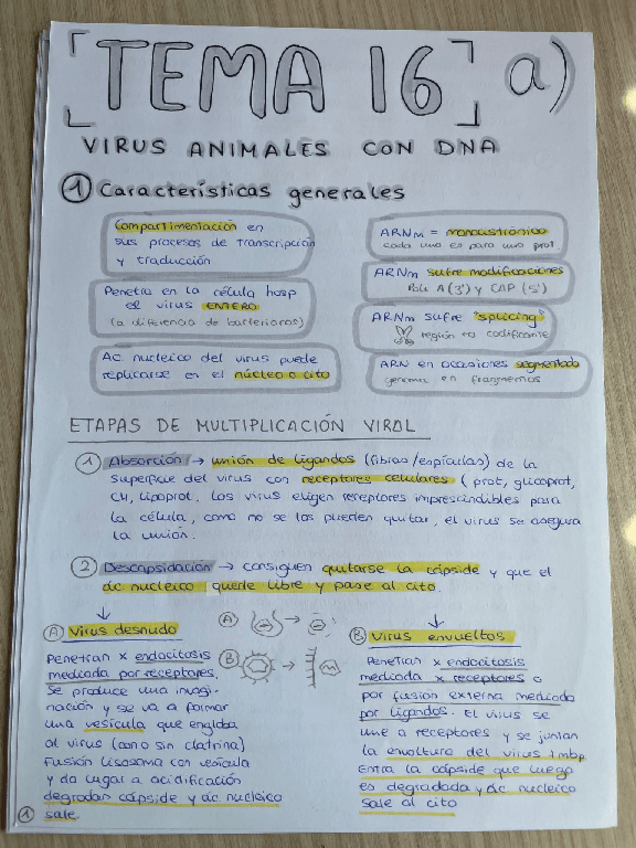 [TEMA 16] a)
VIRUS ANIMALES CON DNA
① Características generales
Compartimentación en
sus procesos de transcripción
y traducción
Penetra en la célula hosp
el virus ENTERO
(a diferencia de bacterianos)
Ac. nucleico del virus puede
replicarse en el núcleo o cito
ARNm = monocistrónico
cada uno es para una prot.
ARNm sufre modificaciones
Poli A (3') y CAP (5')
ARNm sufre "splicing"
región no codificante
ARN en ocasiones segmentado
genoma en fragmentos
ETAPAS DE MULTIPLICACIÓN VIRAL
① Absorción → unión de ligandos (fibras/espículas) de la
superficie del virus con receptores celulares (prot, glicoprot,
CH, lipoprot. Los virus eligen receptores imprescindibles para
la célula, como no se los pueden quitar, el virus se asegura
la unión.
② Descapsidación → consiguen quitarse la cápside y que el
ác nucleico quede libre y pase al cito.
Ⓐ Virus desnudo
Penetran x endocitosis
mediada por receptores.
Se produce una invagi-
nación y se va a formar
una vesícula que engloba
al virus (con o sin clatrina)
Fusión lisosoma con vesícula
y da lugar a acidificación
degradan cápside y ác nucleico
sale.
Ⓐ
Ⓑ
Ⓑ Virus envueltos
Penetran x endocitosis
mediada x receptores o
por fusión externa mediada
por ligandos. El virus se
une a receptores y se juntan
la envoltura del virus + mbp
Entra la cápside que luego
es degradada y ác nucleico
sale al cito
①